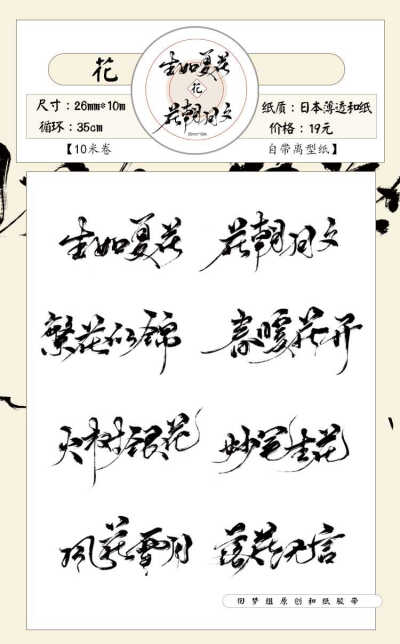 花
生如夏花
花
花朝月夕
尺寸：26mm*10m
循环：35cm
纸质：日本薄透和纸
价格：19元
【10米卷
自带离型纸】
生如夏花 花朝月夕
繁花似锦 春暖花开
火树银花 妙笔生花
风花雪月 落花无言
旧梦组原创和纸胶带